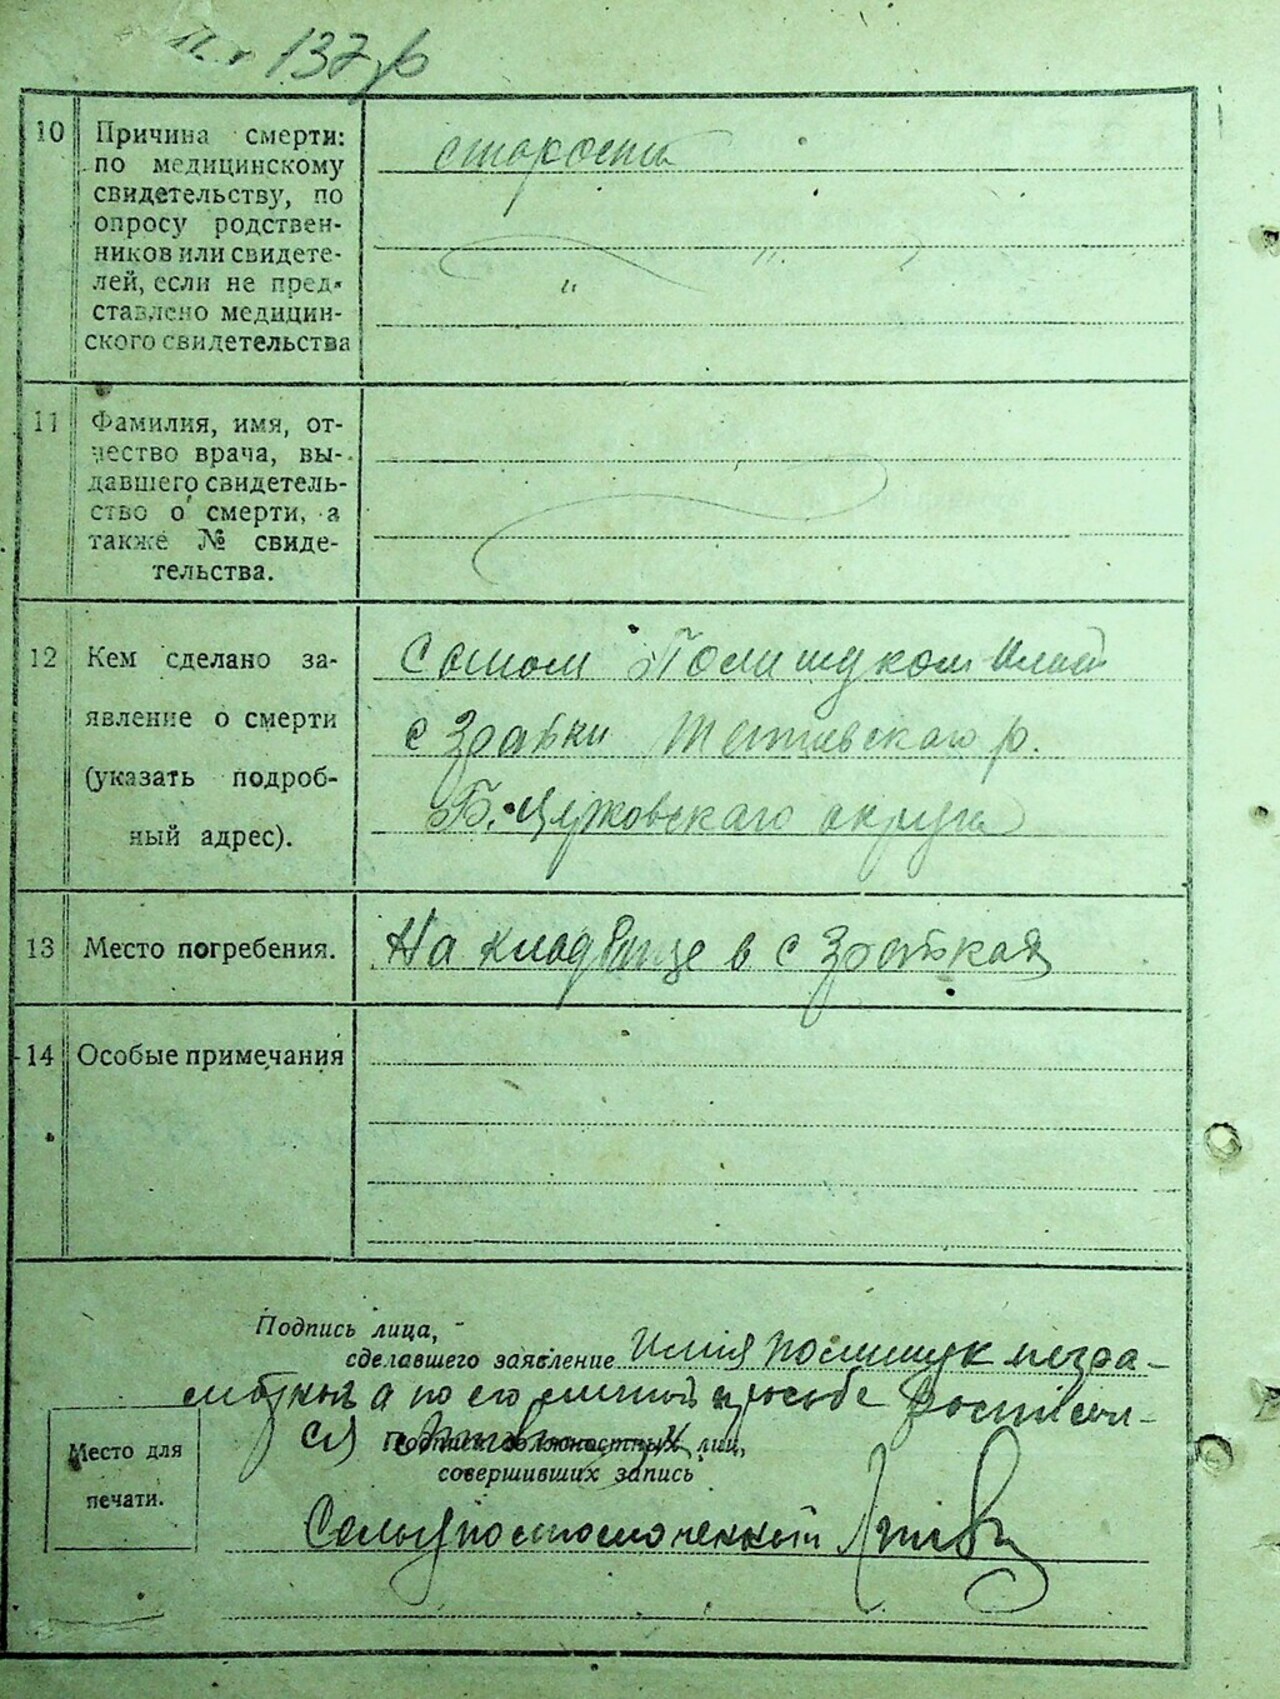 137
10 Причина смерти:
по медицинскому
свидетельству, по
опросу родствен-
ников или свидете-
лей, если не пред-
ставлено медицин-
ского свидетельства
старости
"
"
11 Фамилия, имя, от-
чество врача, вы-
давшего свидетель-
ство о смерти, а
также № свиде-
тельства.
12 Кем сделано за-
явление о смерти
(указать подроб-
ный адрес).
Сыном Полищуком
с Тетиевскаго р.
Б. Церковскаго округа
13 Место погребения.
На кладбище в с
14 Особые примечания
Подпись лица,
сделавшего заявление Илия Полищук негра-
мотный а по его личной просьбе росписал-
ся
Подписи должностных лиц,
совершивших запись
Место для
печати.
Сельуполномоченный